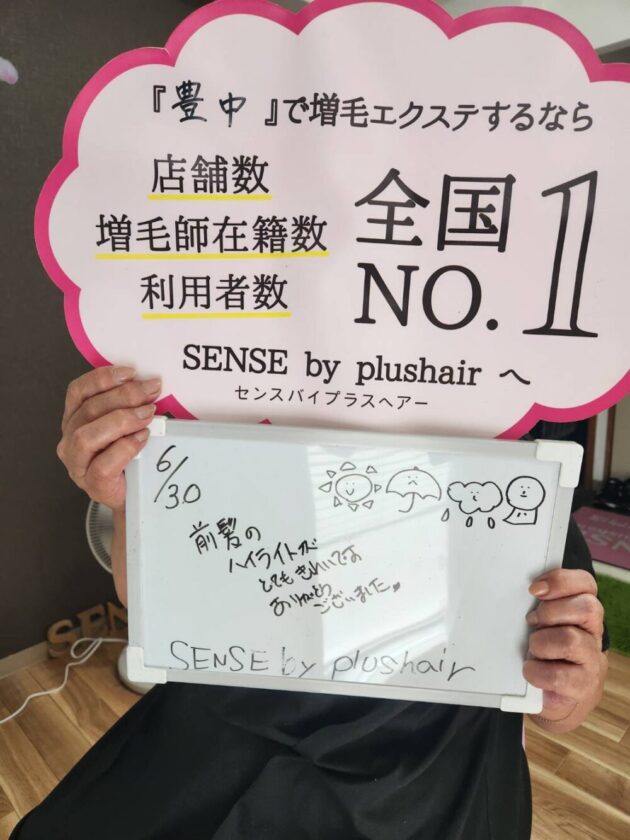 『豊中』で増毛エクステするなら
店舗数
増毛師在籍数
利用者数
全国
NO.1
SENSE by plushair へ
センスバイプラスヘアー
6/30
前髪の
ハイライトが
とてもきれいです
ありがとう
ございました
SENSE by plushair
SEN